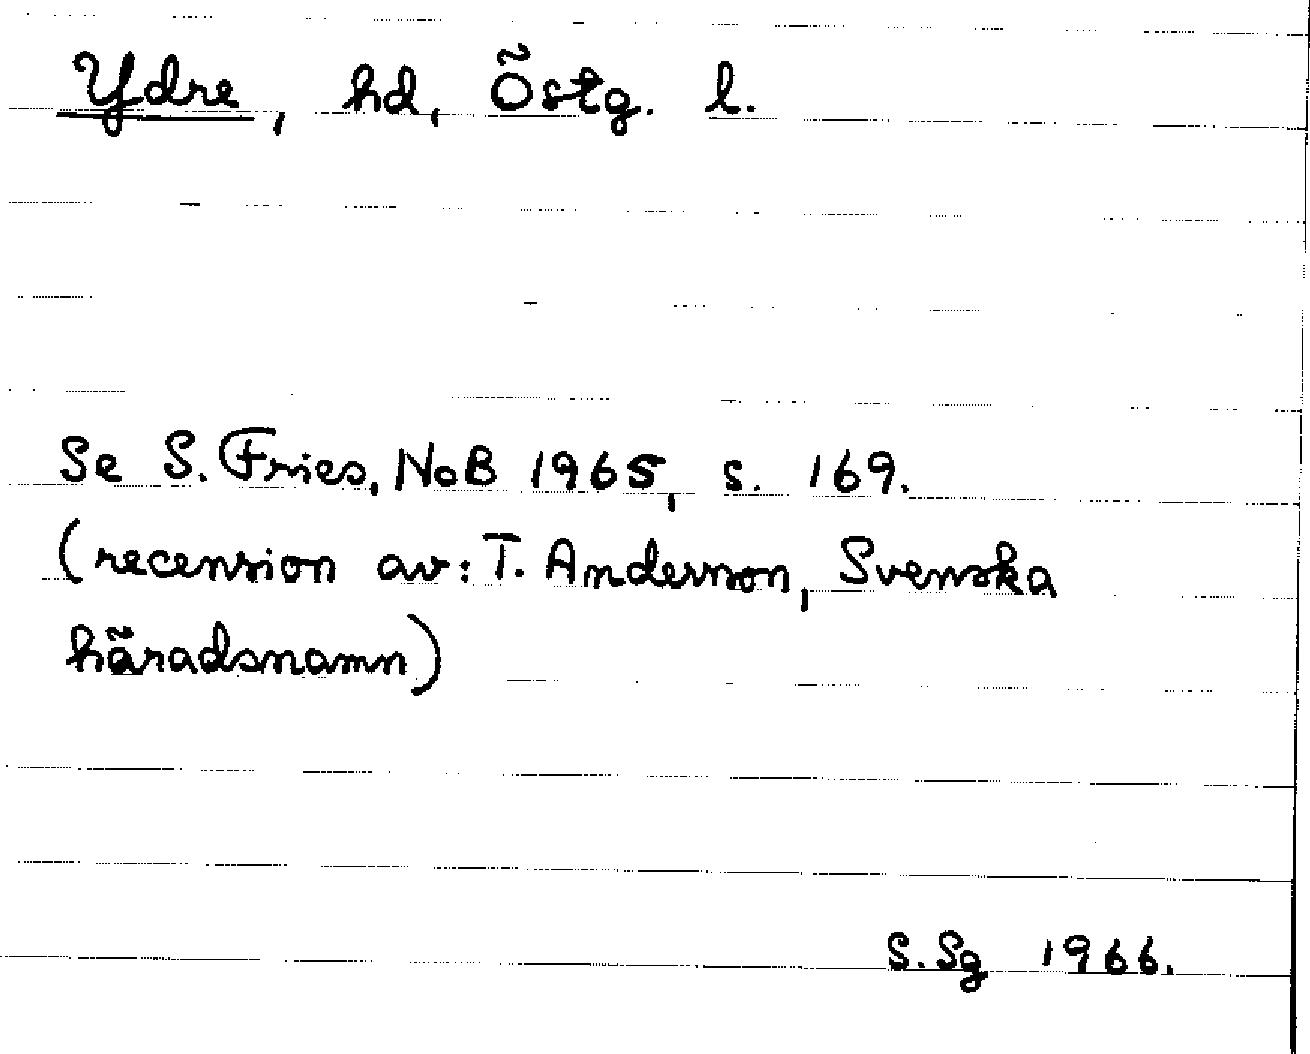 Ydre, hd, Östg. l.
Se S. Fries, NoB 1965, s. 169.
(recension av: T. Andersson, Svenska
häradsnamn)
S. Sg 1966.